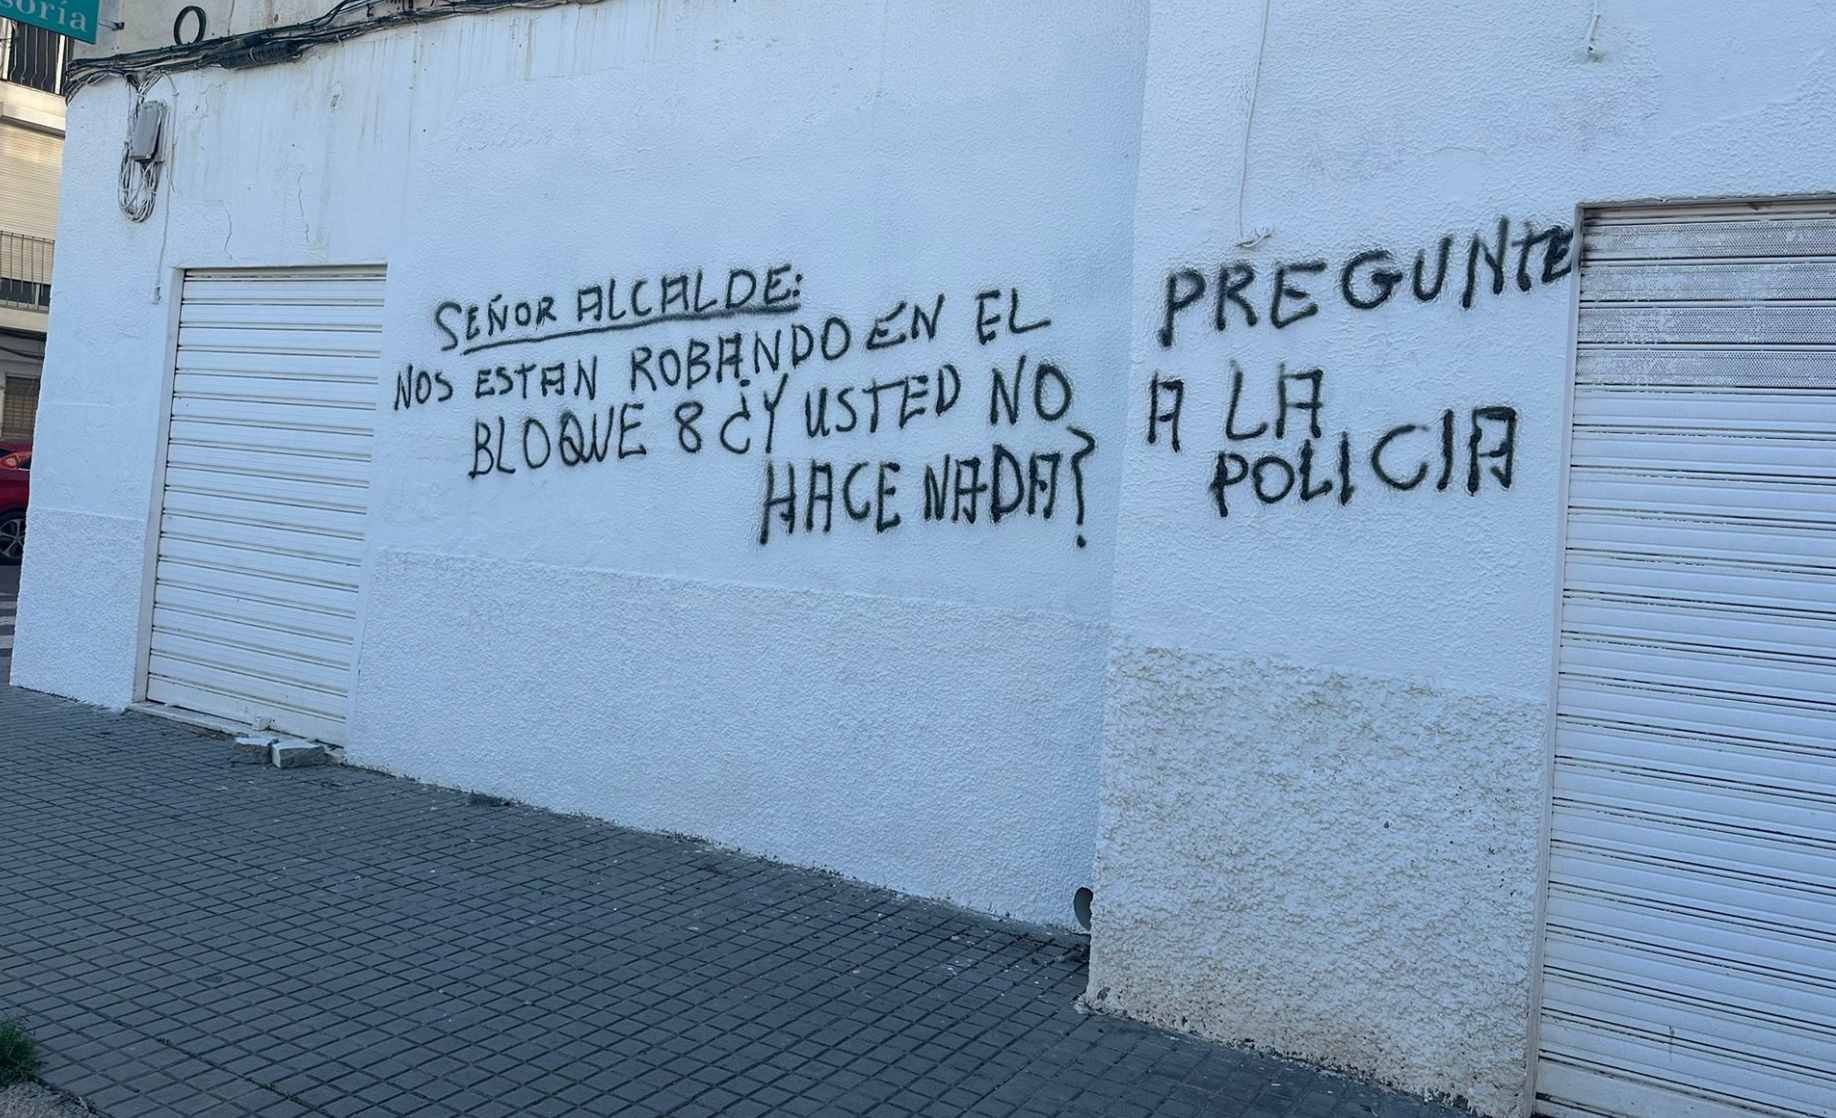 soría
SEÑOR ALCALDE:
NOS ESTAN ROBANDO EN EL
BLOQUE 8 ¿Y USTED NO
HACE NADA?
PREGUNTE
A LA
POLICIA